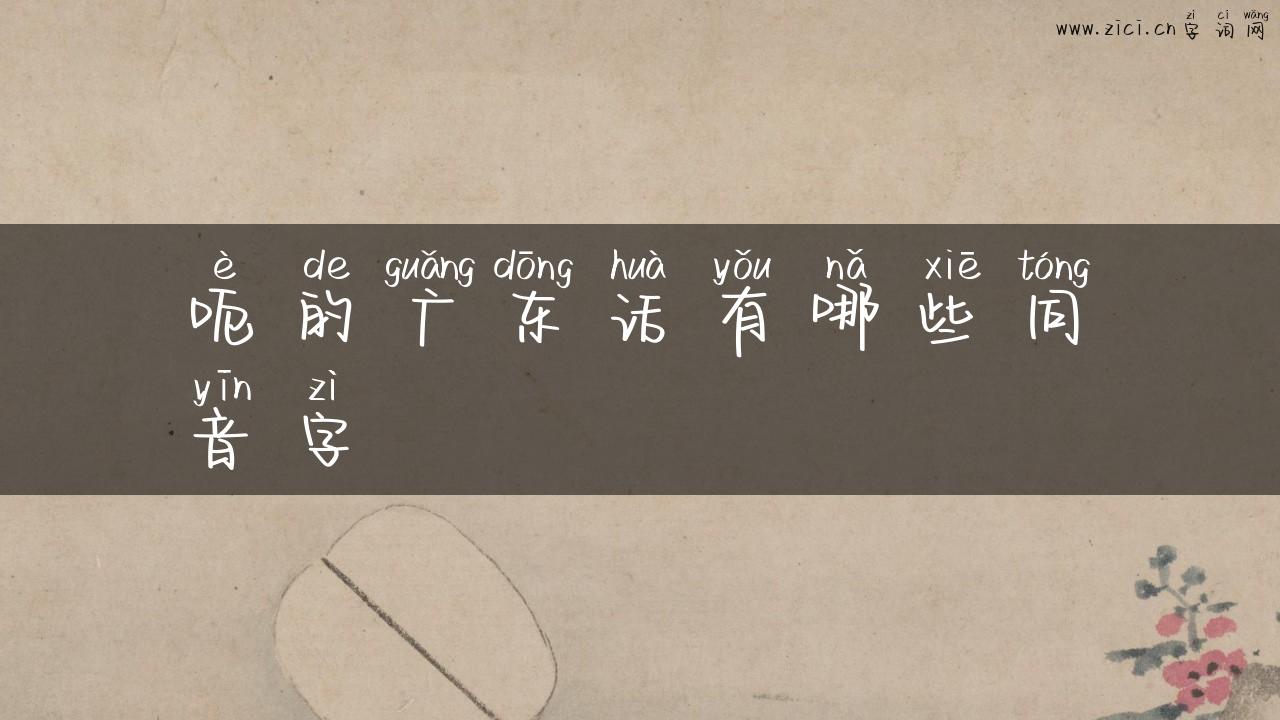 zì cí wǎng
www.zici.cn 字词网
è de guǎng dōng huà yǒu nǎ xiē tóng
呃的广东话有哪些同
yīn zì
音字